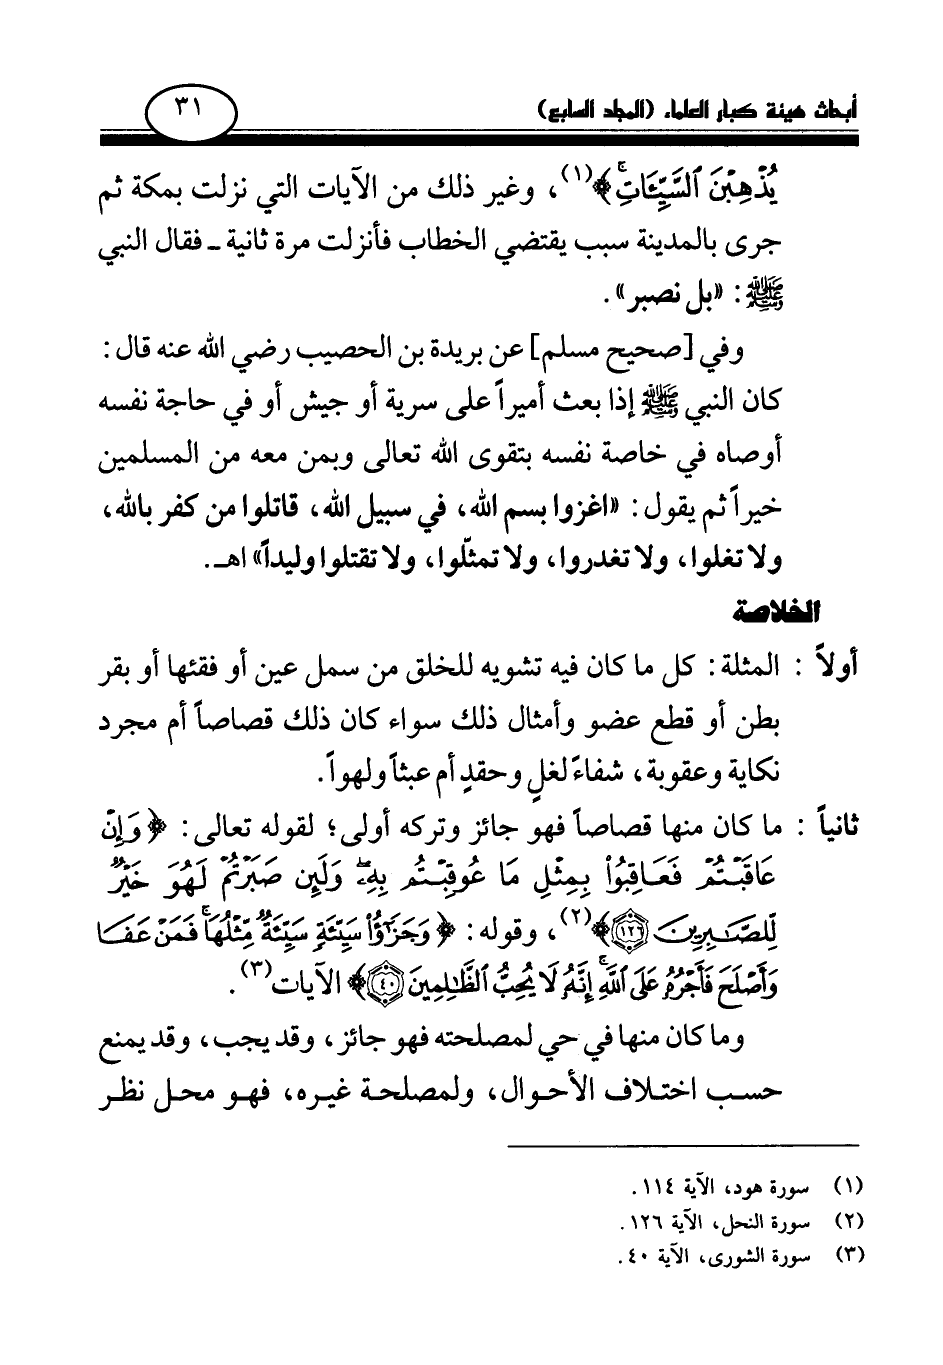 أبحاث هيئة كبار العلماء (المجلد السابع)
٣١
يُذْهِبْنَ ٱلسَّيِّـَٔاتِۚ﴾(١)، وغير ذلك من الآيات التي نزلت بمكة ثم
جرى بالمدينة سبب يقتضي الخطاب فأنزلت مرة ثانية ـ فقال النبي
ﷺ: «بل نصبر».
وفي [صحيح مسلم] عن بريدة بن الحصيب رضي الله عنه قال:
كان النبي ﷺ إذا بعث أميراً على سرية أو جيش أو في حاجة نفسه
أوصاه في خاصة نفسه بتقوى الله تعالى وبمن معه من المسلمين
خيراً ثم يقول: «اغزوا بسم الله، في سبيل الله، قاتلوا من كفر بالله،
ولا تغلوا، ولا تغدروا، ولا تمثّلوا، ولا تقتلوا وليداً» اهـ.
الخلاصة
أولاً : المثلة: كل ما كان فيه تشويه للخلق من سمل عين أو فقئها أو بقر
بطن أو قطع عضو وأمثال ذلك سواء كان ذلك قصاصاً أم مجرد
نكاية وعقوبة، شفاءً لغلٍ وحقدٍ أم عبثاً ولهواً.
ثانياً : ما كان منها قصاصاً فهو جائز وتركه أولى؛ لقوله تعالى: ﴿وَإِنْ
عَاقَبْتُمْ فَعَاقِبُوا۟ بِمِثْلِ مَا عُوقِبْتُم بِهِۦۖ وَلَئِن صَبَرْتُمْ لَهُوَ خَيْرٌ
لِّلصَّـٰبِرِينَ ١٢٦﴾(٢)، وقوله: ﴿وَجَزَٰٓؤُا۟ سَيِّئَةٍ سَيِّئَةٌ مِّثْلُهَاۖ فَمَنْ عَفَا
وَأَصْلَحَ فَأَجْرُهُۥ عَلَى ٱللَّهِۚ إِنَّهُۥ لَا يُحِبُّ ٱلظَّـٰلِمِينَ ٤٠﴾ الآيات(٣).
وما كان منها في حي لمصلحته فهو جائز، وقد يجب، وقد يمنع
حسب اختلاف الأحوال، ولمصلحة غيره، فهو محل نظر
(١) سورة هود، الآية ١١٤.
(٢) سورة النحل، الآية ١٢٦.
(٣) سورة الشورى، الآية ٤٠.